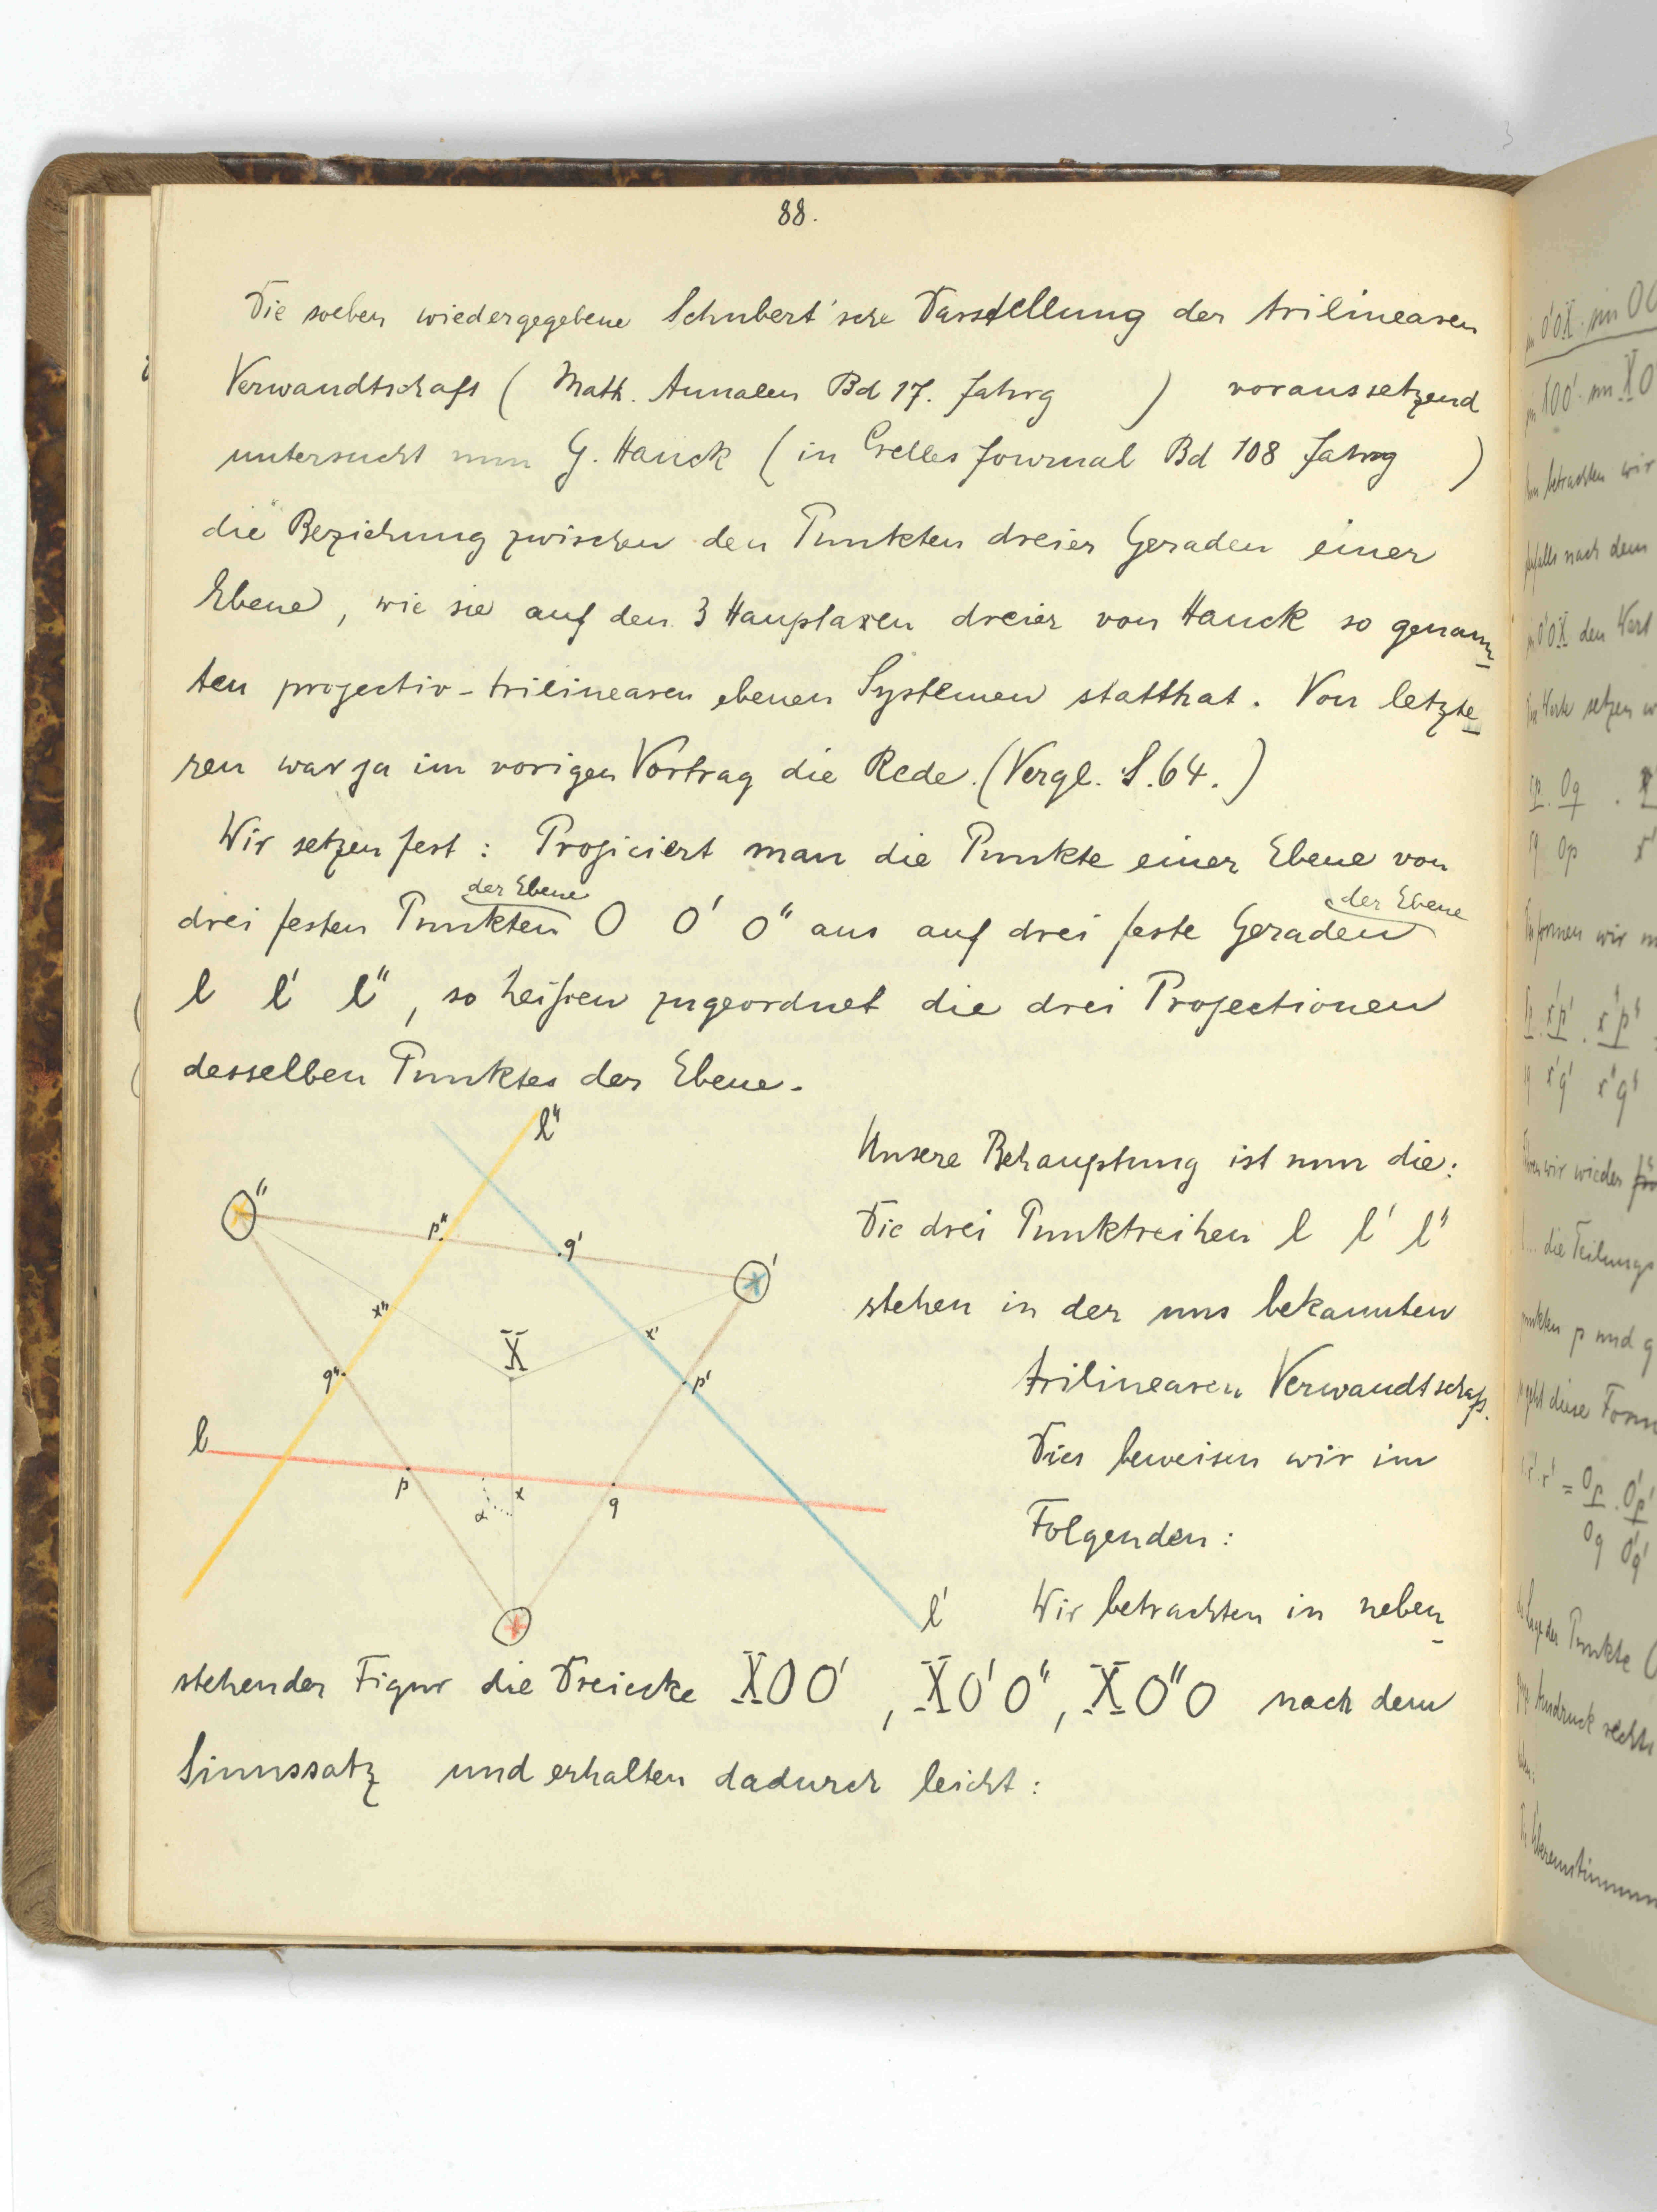 88.
Die soeben wiedergegebene Schubert'sche Darstellung der trilinearen
Verwandtschaft ( Math. Annalen Bd 17. Jahrg ) voraussetzend
untersucht nun G. Hauck ( in Crelles Journal Bd 108 Jahrg )
die Beziehung zwischen den Punkten dreier Geraden einer
Ebene, wie sie auf den 3 Hauptaxen dreier von Hauck so genann-
ten projectiv-trilinearen ebenen Systemen statthat. Von letzte-
ren war ja im vorigen Vortrag die Rede. (Vergl. S. 64.)
Wir setzen fest: Projiciert man die Punkte einer Ebene von
der Ebene der Ebene
drei festen Punkten O O' O" aus auf drei feste Geraden
l l' l", so heißen zugeordnet die drei Projectionen
desselben Punktes der Ebene.
l"
O"
p"
q'
O'
x"
X
x'
q"
p'
l
p
x
α
q
O
l'
Unsere Behauptung ist nun die:
Die drei Punktreihen l l' l"
stehen in der uns bekannten
trilinearen Verwandtschaft.
Dies beweisen wir im
Folgenden:
Wir betrachten in neben-
stehender Figur die Dreiecke XOO', XO'O", XO"O nach dem
Sinussatz und erhalten dadurch leicht:
betrachten wir
nach dem
den Wert
Werte setzen
formen wir
wir wieder
die Teilungs
punkten p und q
diese Form
Lage der Punkte
Ausdruck rechts